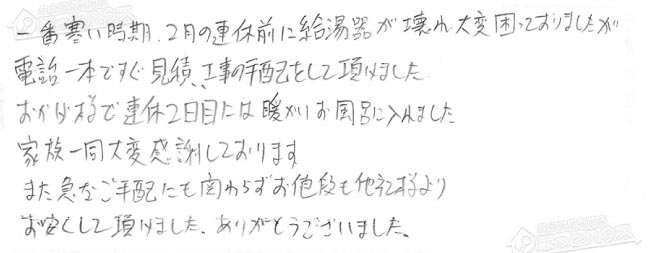 一番寒い時期、2月の連休前に給湯器が壊れ大変困っておりましたが
電話一本ですぐ見積、工事の手配をして頂けました
おかげ様で連休2日目には暖かいお風呂に入れました
家族一同大変感謝しております
また急なご手配にも関わらずお値段も他社様より
お安くして頂けました、ありがとうございました。